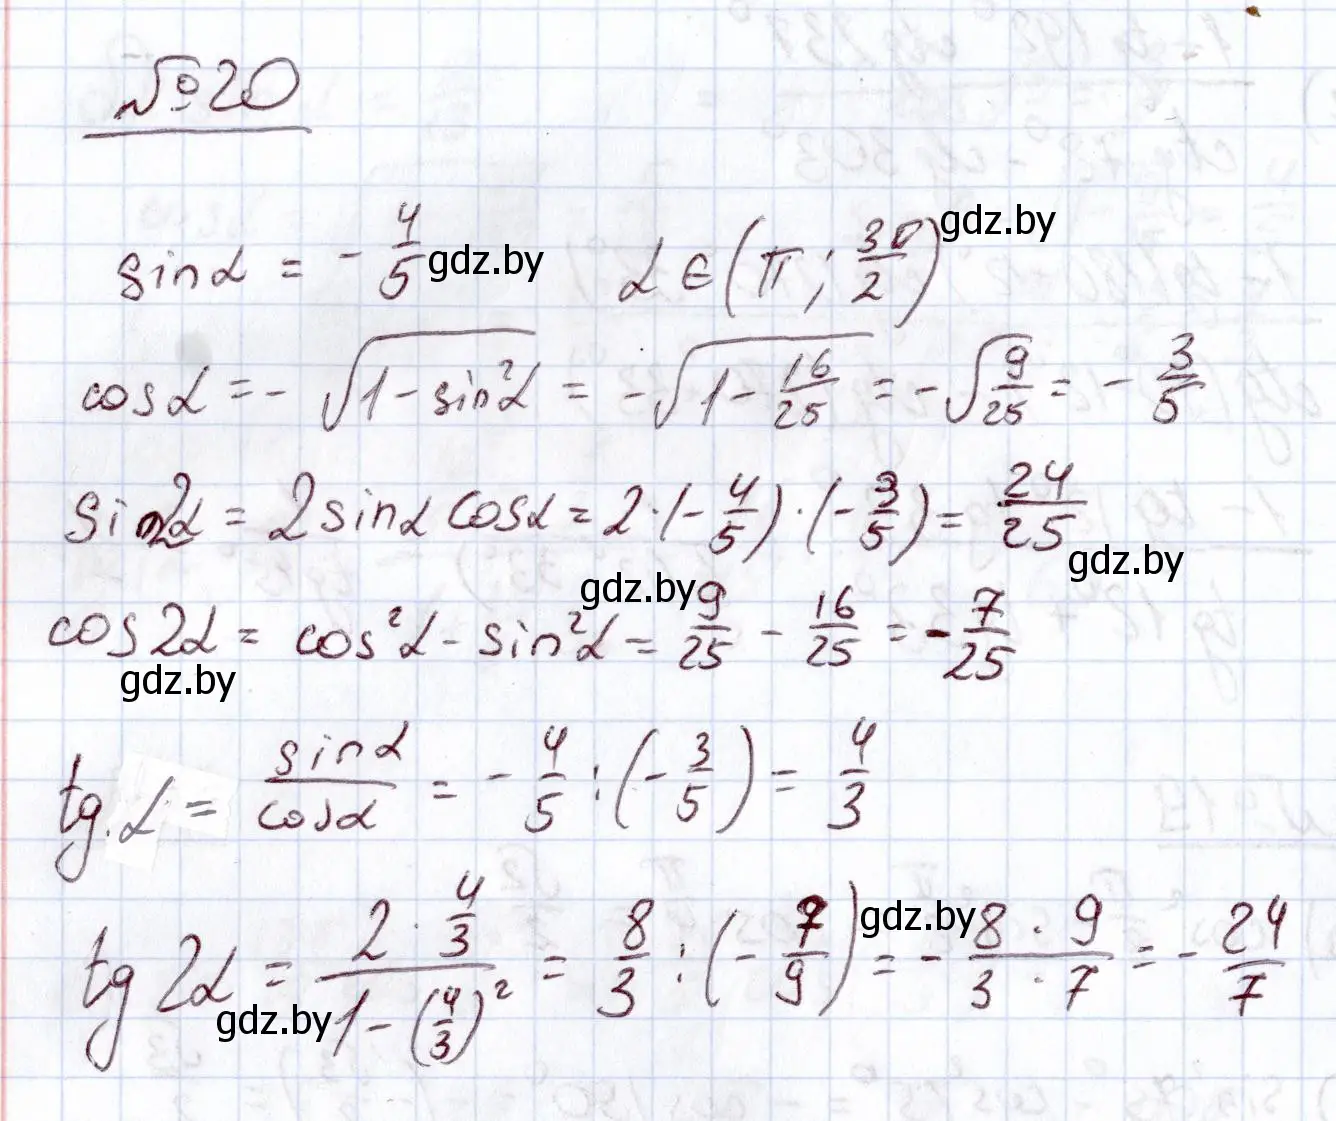 №20
sinα = - 4/5 gdz.by α ∈ (π; 3π/2) gdz.by
cosα = - √(1 - sin²α) = - √(1 - 16/25) = - √(9/25) = - 3/5
sin2α = 2sinα cosα = 2·(- 4/5)·(- 3/5) = 24/25 gdz.by
gdz.by
cos2α = cos²α - sin²α = 9/25 - 16/25 = - 7/25
gdz.by
tg.α = sinα/cosα = - 4/5 : (- 3/5) = 4/3
tg2α = (2 · 4/3)/(1 - (4/3)²) = 8/3 : (- 7/9) gdz.by = - (8 · 9)/(3 · 7) = - 24/7
gdz.by